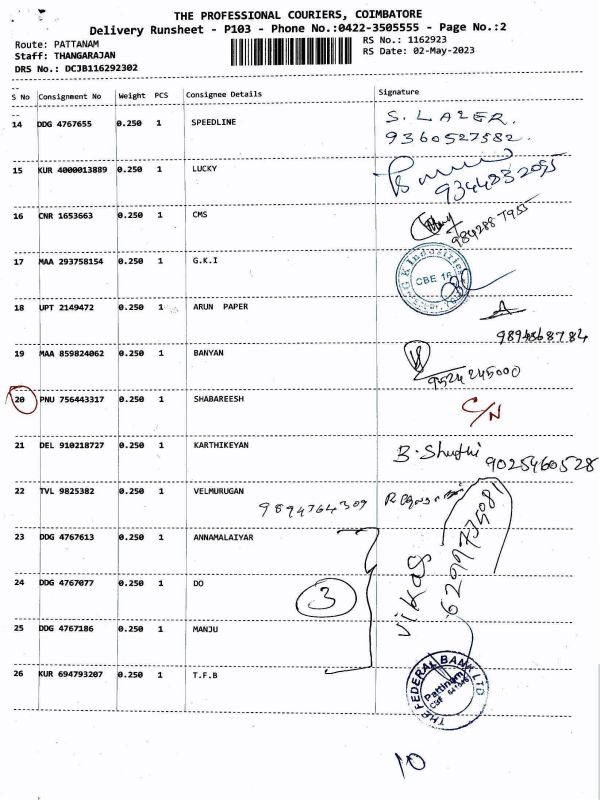 THE PROFESSIONAL COURIERS, COIMBATORE
Delivery Runsheet - P103 - Phone No.:0422-3505555 - Page No.:2
Route: PATTANAM
RS No.: 1162923
Staff: THANGARAJAN
RS Date: 02-May-2023
DRS No.: DCJB116292302
S No Consignment No Weight PCS Consignee Details Signature
14 DDG 4767655 0.250 1 SPEEDLINE S. LAZER.
9360527582.
15 KUR 4000013889 0.250 1 LUCKY
16 CNR 1653663 0.250 1 CMS
17 MAA 293758154 0.250 1 G.K.I
G K Industries
CBE 16
18 UPT 2149472 0.250 1 ARUN PAPER
19 MAA 859824062 0.250 1 BANYAN
9524245000
20 PNU 756443317 0.250 1 SHABAREESH C/N
21 DEL 910218727 0.250 1 KARTHIKEYAN B. Shuthi 9025460528
22 TVL 9825382 0.250 1 VELMURUGAN 9894764309
23 DDG 4767613 0.250 1 ANNAMALAIYAR
24 DDG 4767077 0.250 1 DO 3
vikas
25 DDG 4767186 0.250 1 MANJU
26 KUR 694793207 0.250 1 T.F.B
THE FEDERAL BANK LTD
Pattinam
10